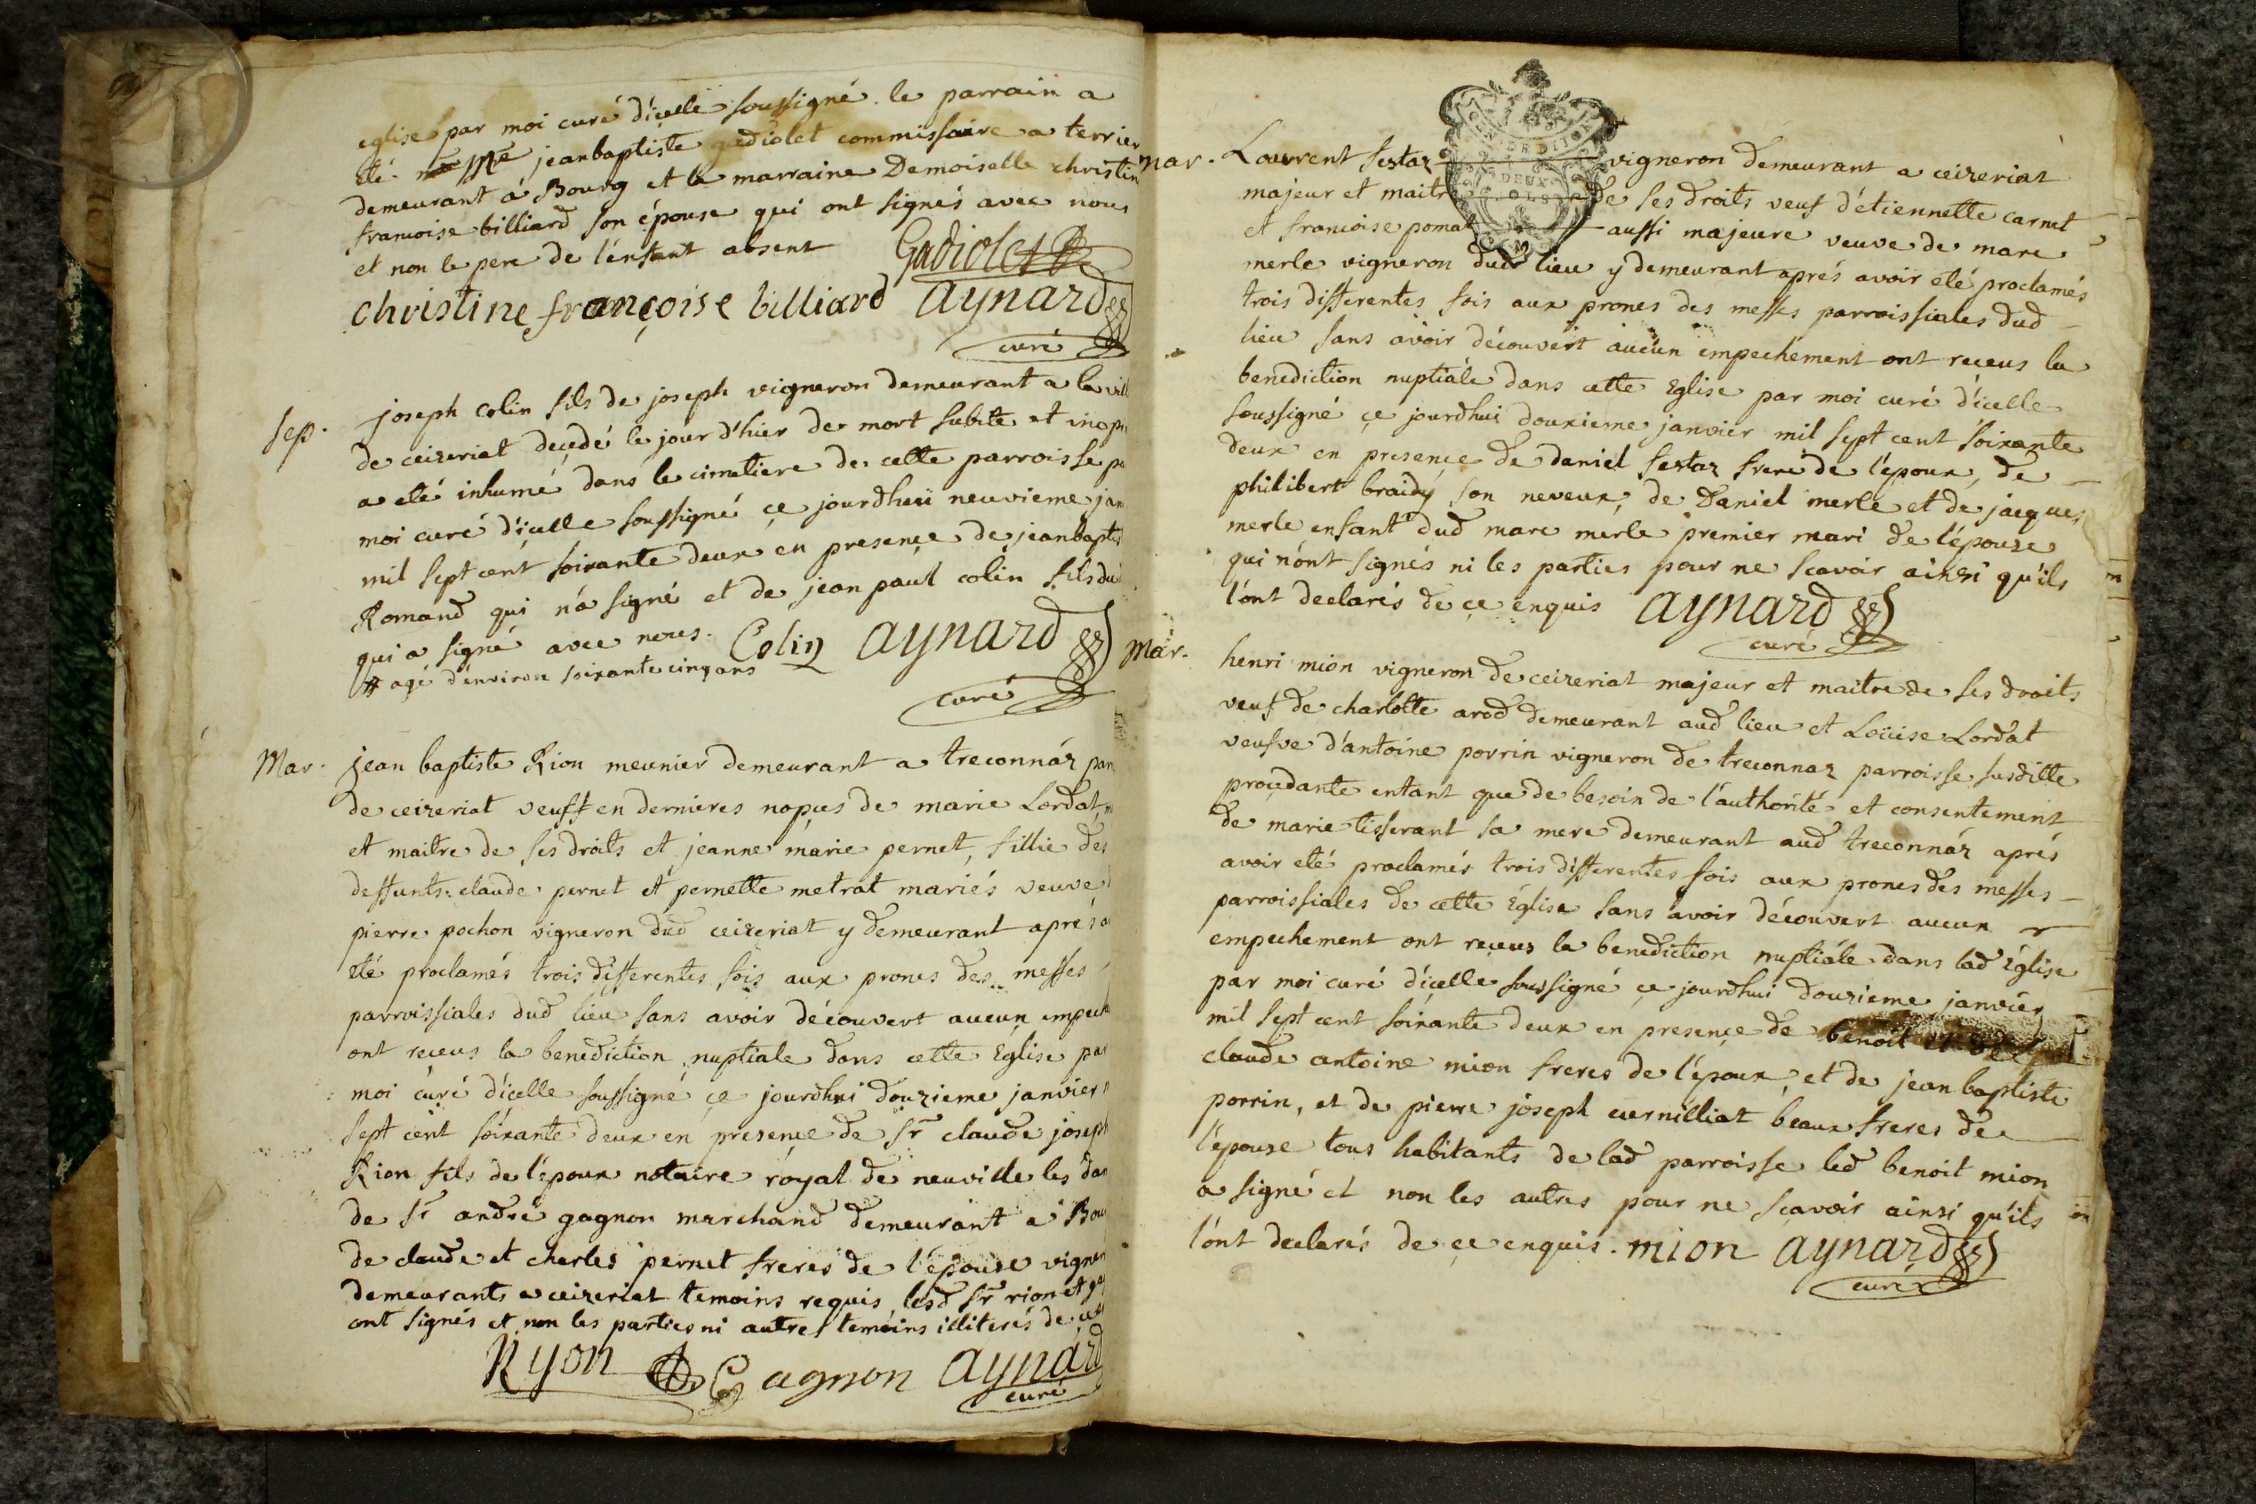 eglise par moi curé d'icelle soussigné. le parrain a
eté Me jeanbaptiste gadiolet commissaire a terrier
demeurant à Bourg et la marraine Demoiselle christin
francoise billiard son épouse qui ont signés avec nous
et non le pere de l'enfant absent Gadiolet
christine françoise billiard aynard
curé
sep. joseph colin fils de joseph vigneron demeurant a la vill
de ceizeriat decedé le jour d'hier de mort subite et inop
a eté inhumé dans le cimetiere de cette parroisse pa
moi curé d'icelle soussigné ce jourdhui neuvieme jan
mil sept cent soixante deux en presence de jeanbaptis
Romand qui n'a signé et de jean paul colin fils du
qui a signé avec nous. Colin aynard
# agé d'environ soixante cinq ans
curé
Mar. jean baptiste Rion meunier demeurant a treconnáz par
de ceizeriat veuf en dernieres nopces de marie Lordat, m
et maitre de ses droits et jeanne marie pernet, fillie des
deffunts claude pernet et pernette metrat mariés veuve
pierre pochon vigneron dud ceizeriat y demeurant après a
eté proclamés trois differentes fois aux prones des messes
parroissiales dud lieu sans avoir découvert aucun empech
ont receus la benediction nuptiale dans cette Eglise par
moi curé d'icelle soussigné ce jourdhui douzieme janvier
sept cent soixante deux en presence de sr claude joseph
Rion fils de l'époux notaire royal de neuville les dam
de sr andré gagnon marchand demeurant a Bou
de claude et charles pernet freres de l'épouse vigner
demeurants a ceizeriat temoins requis, lesd sr rion et ga
ont signés et non les parties ni autres temoins illiterés de ce
Ryon Gagnon aynard
curé
mar. Laurrent sestaz vigneron demeurant a ceizeriat
majeur et maitre de ses droits veuf d'étiennette carnet
et francoise pomat aussi majeure veuve de marc
merle vigneron dud lieu y demeurant aprés avoir eté proclamés
trois differentes fois aux prones des messes parroissiales dud
lieu sans avoir découvert aucun empechement ont receus la
benediction nuptiale dans cette Eglise par moi curé d'icelle
soussigné ce jourdhui douzieme janvier mil sept cent soixante
deux en presence de daniel sestaz frere de l'époux, de
philibert braidy son neveux, de Daniel merle et de jacques
merle enfants dud marc merle premier mari de l'épouze
qui n'ont signés ni les parties pour ne scavoir ainsi qu'ils
l'ont declarés de ce enquis aynard
curé
Mar. henri mion vigneron de ceizeriat majeur et maitre de ses droits
veuf de charlotte arod demeurant aud lieu et Loüise Lordat
veufve d'antoine porrin vigneron de treconnaz parroisse susditte
procedante entant que de besoin de l'authorité et consentement
de marie tisserant sa mere demeurant aud treconnáz aprés
avoir eté proclamés trois differentes fois aux prones des messes
parroissiales de cette Église sans avoir découvert aucun
empechement ont receus la benediction nuptiale dans lad Église
par moi curé d'icelle soussigné ce jourdhui douzieme janvier
mil sept cent soixante deux en presence de benoit et de
claude antoine mion freres de l'époux, et de jean baptiste
porrin, et de pierre joseph cuernilliat beaux freres de
l'épouse tous habitants de lad parroisse led benoit mion
a signé et non les autres pour ne scavoir ainsi qu'ils
l'ont declarés de ce enquis. mion aynard
curé